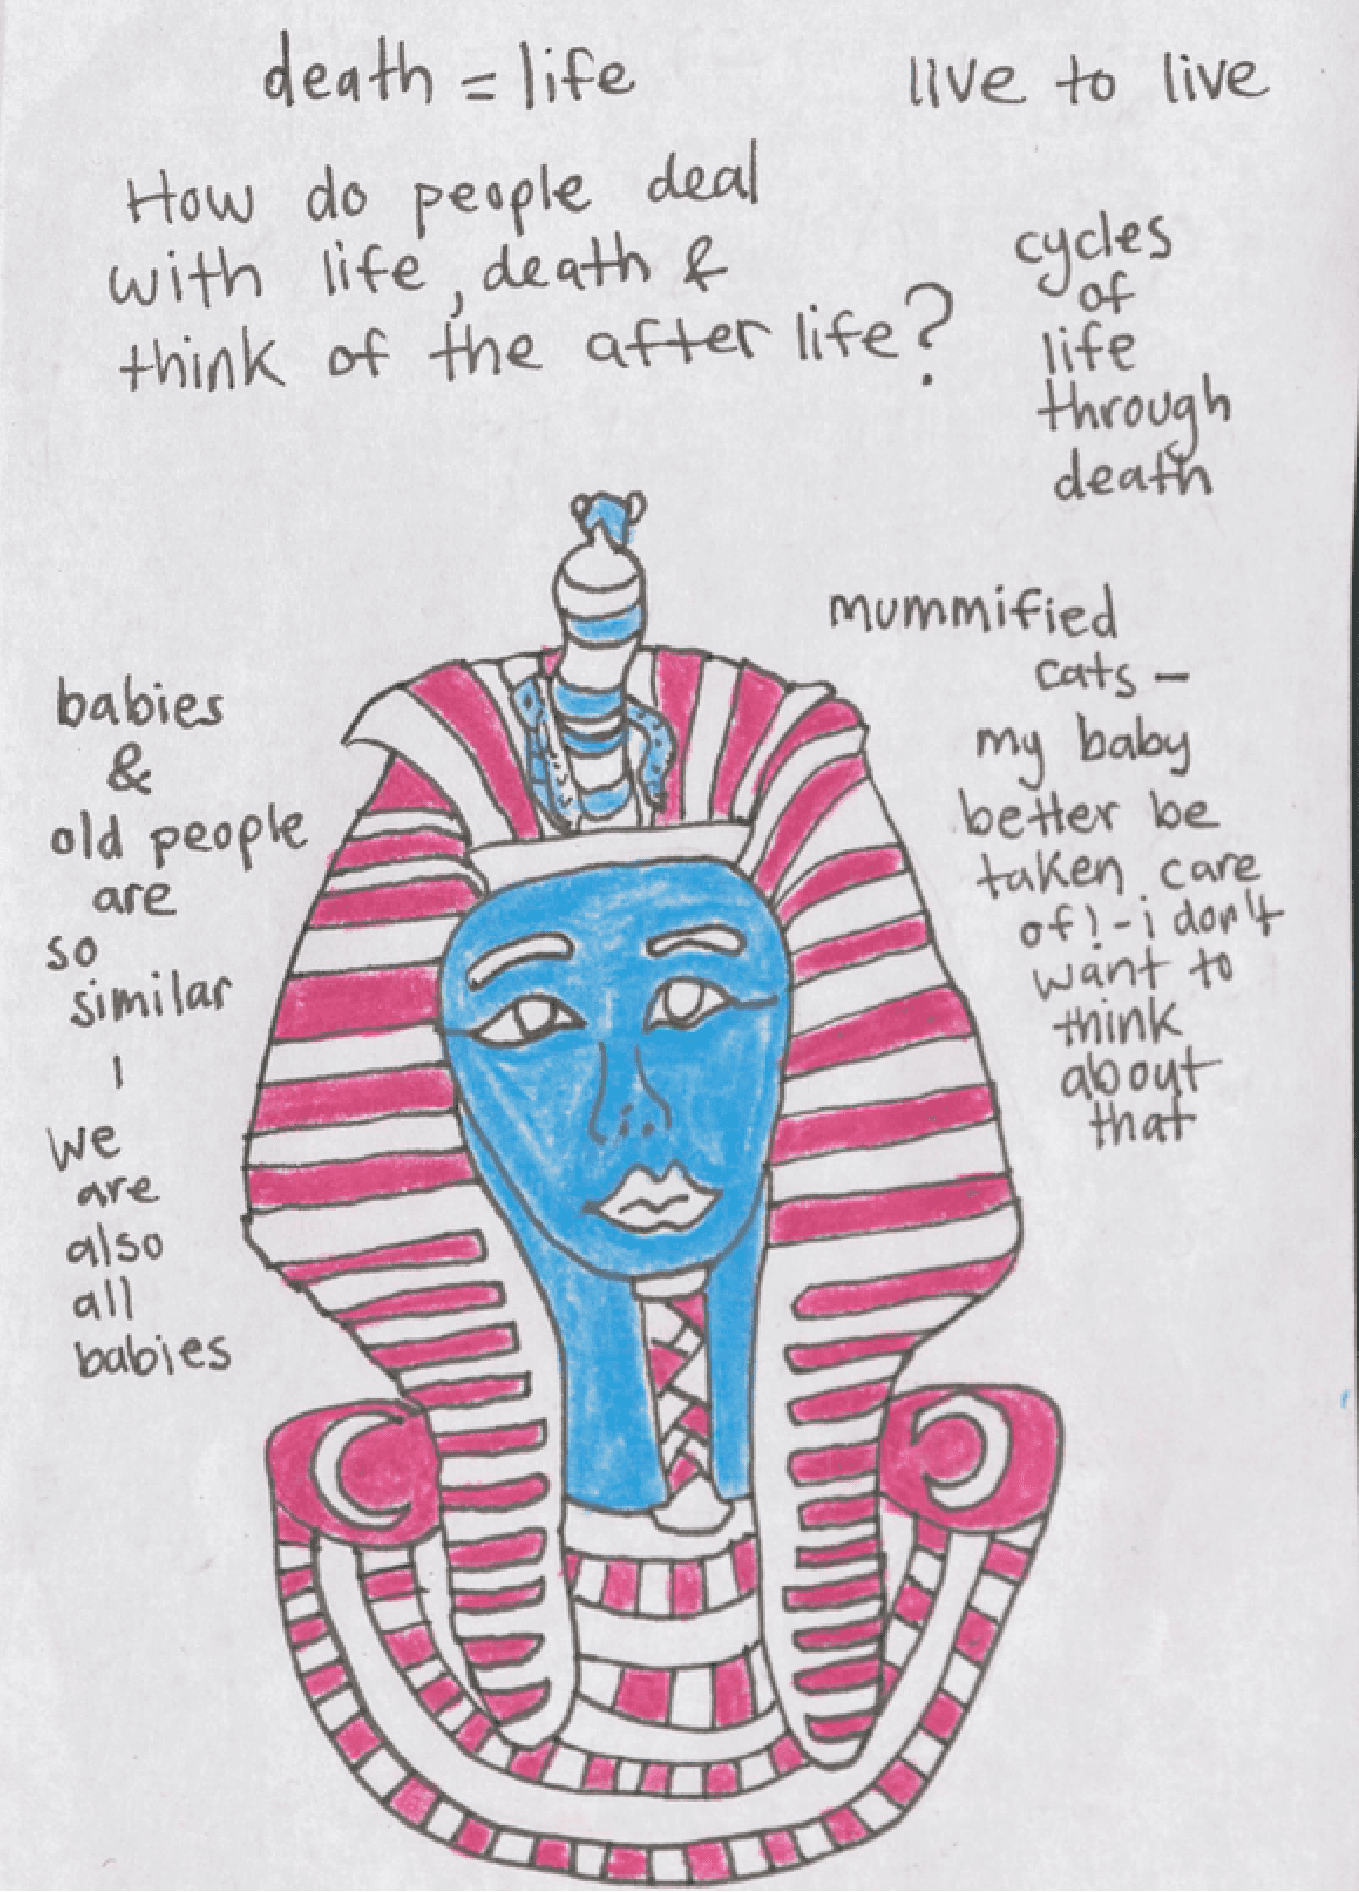 death = life
live to live
How do people deal
with life, death &
think of the after life?
cycles
of
life
through
death
mummified
cats –
my baby
better be
taken care
of! - i don't
want to
think
about
that
babies
&
old people
are
so
similar
|
we
are
also
all
babies